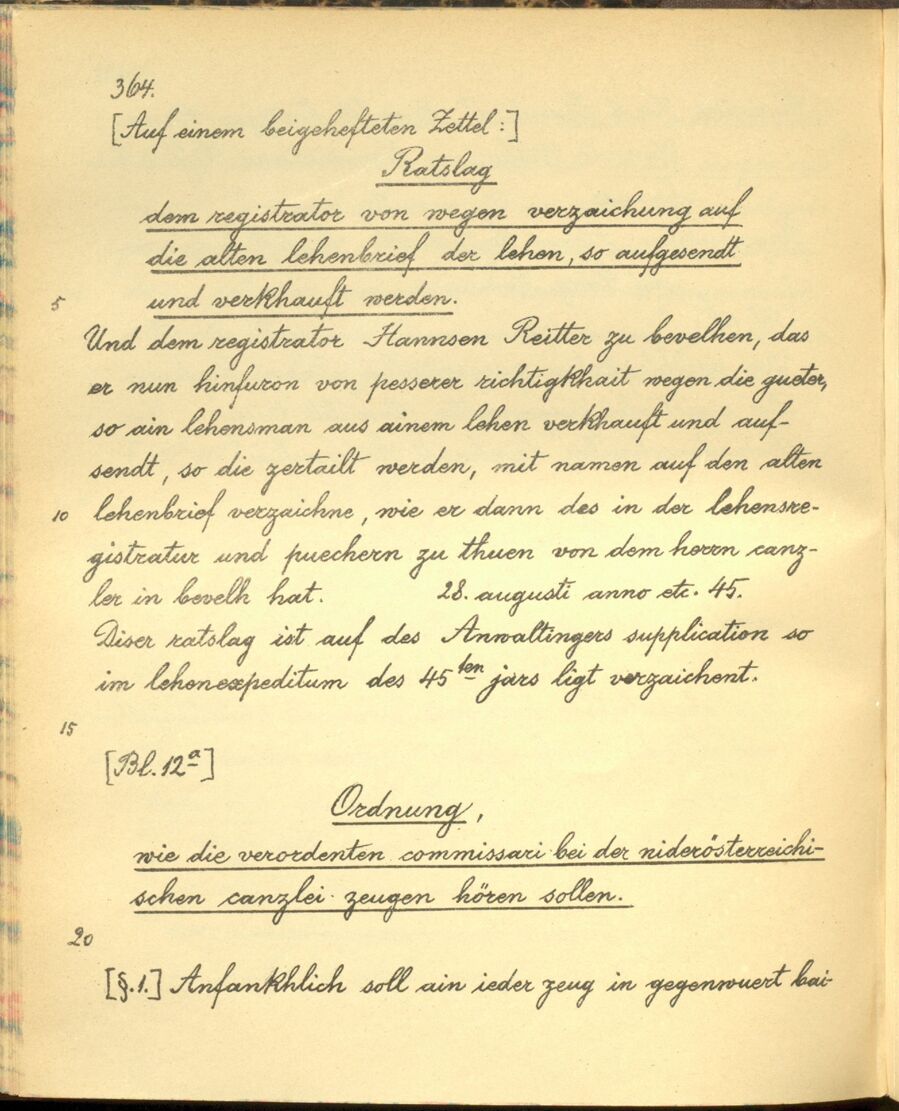 364.
[Auf einem beigehefteten Zettel:]
Ratslag
dem registrator von wegen verzaichung auf
die alten lehenbrief der lehen, so aufgesendt
5 und verkhauft werden.
Und dem registrator Hannsen Reitter zu bevelhen, das
er nun hinfuron von pesserer richtigkhait wegen die gueter,
so ain lehensman aus ainem lehen verkhauft und auf-
sendt, so die zertailt werden, mit namen auf den alten
10 lehenbrief verzaichne, wie er dann des in der lehensre-
gistratur und puechern zu thuen von dem herrn canz-
ler in bevelh hat. 28. augusti anno etc. 45.
Diser ratslag ist auf des Anwaltingers supplication so
im lehenexpeditum des 45ten jars ligt verzaichent.
15
[Bl. 12a]
Ordnung,
wie die verordenten commissari bei der niderösterreichi-
schen canzlei zeugen hören sollen.
20
[§.1.] Anfankhlich soll ain ieder zeug in gegenwuert bai-